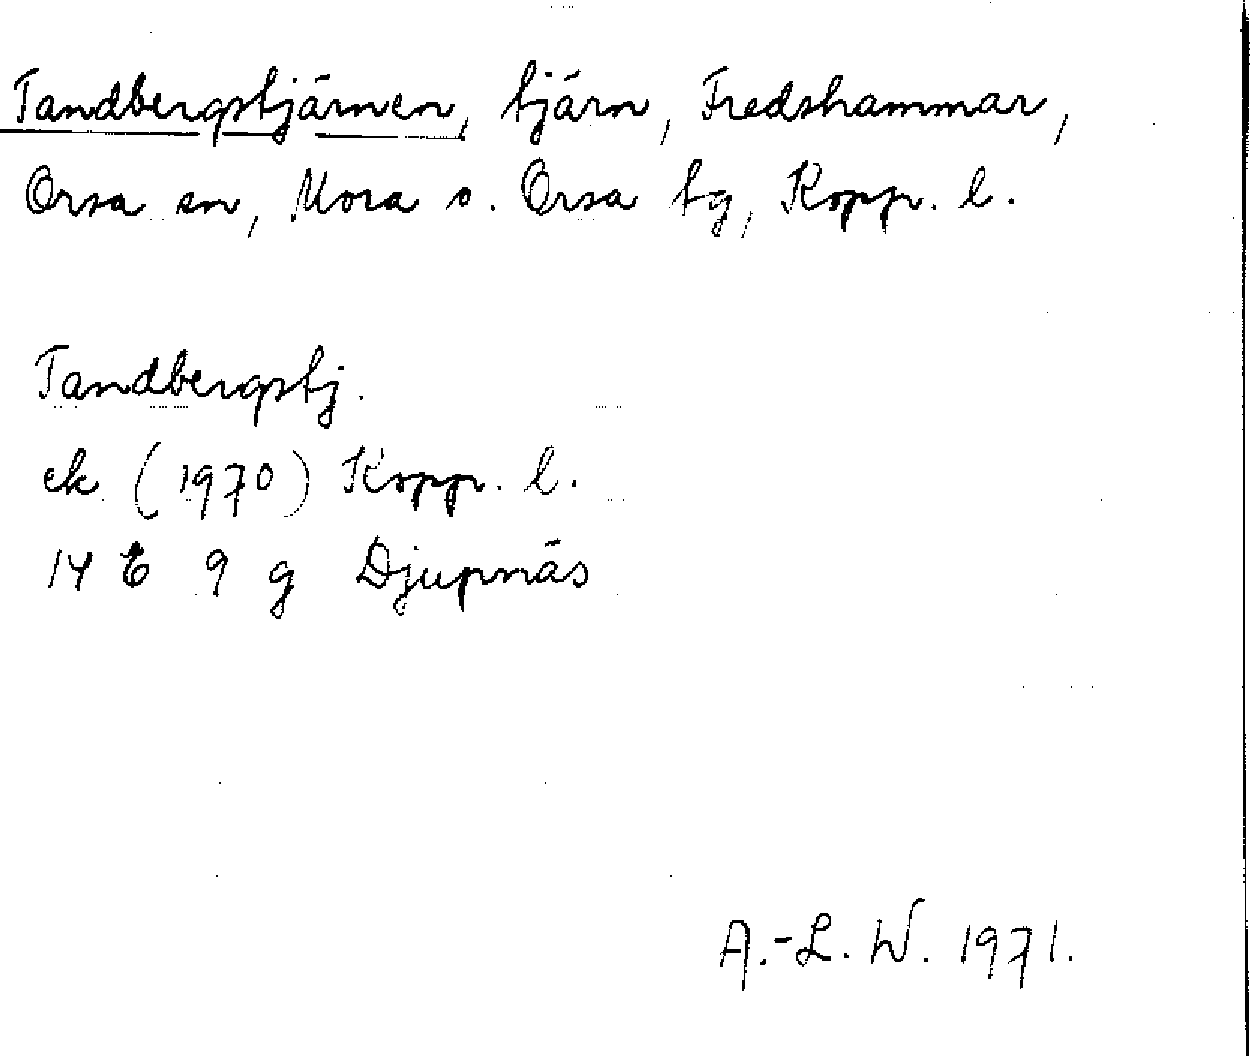 Tandbergstjärnen, tjärn, Fredshammar,
Orsa sn, Mora o. Orsa tg, Kopp. l.
Tandbergstj.
ek (1970) Kopp. l.
14 E 9 g Djupnäs
A.-L. W. 1971.